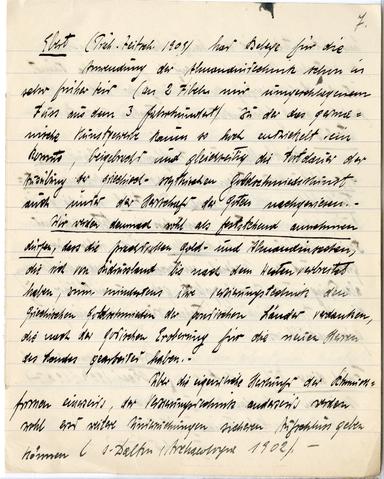 7.
Ebert (Präh. Zeitsch. 1909) hat Belege für die
Anwendung der Almandintechnik schon in
sehr früher Zeit (an 2 Fibeln mit umgeschlagenem
Fuss aus dem 3 Jahrhundert) zu der das germa-
nische Kunstgewerbe kaum so hoch entwickelt sein
konnte, beigebracht und gleichzeitig die Fortdauer der
der griechisch-skythischen Goldschmiedekunst
auch unter der Herrschaft der Goten nachgewiesen.-
Wir werden demnach wohl als feststehend annehmen
dürfen, dass die prachtvollen Gold- und Almandinarbeiten,
die sich von Südrussland bis nach dem Westen verbreitet
haben, zum mindesten ihre Verzierungstechnik den
griechischen Goldschmieden der pontischen Länder verdanken,
die nach der gotischen Eroberung für die neuen Herren
des Landes gearbeitet haben.-
Über die eigentliche Herkunft der Schmuck-
formen einerseits, der Verzierungstechnik anderseits werden
wohl erst weitere Untersuchungen sicheren Aufschluss geben
können (s. Dalton, Archaeologia 1902). -